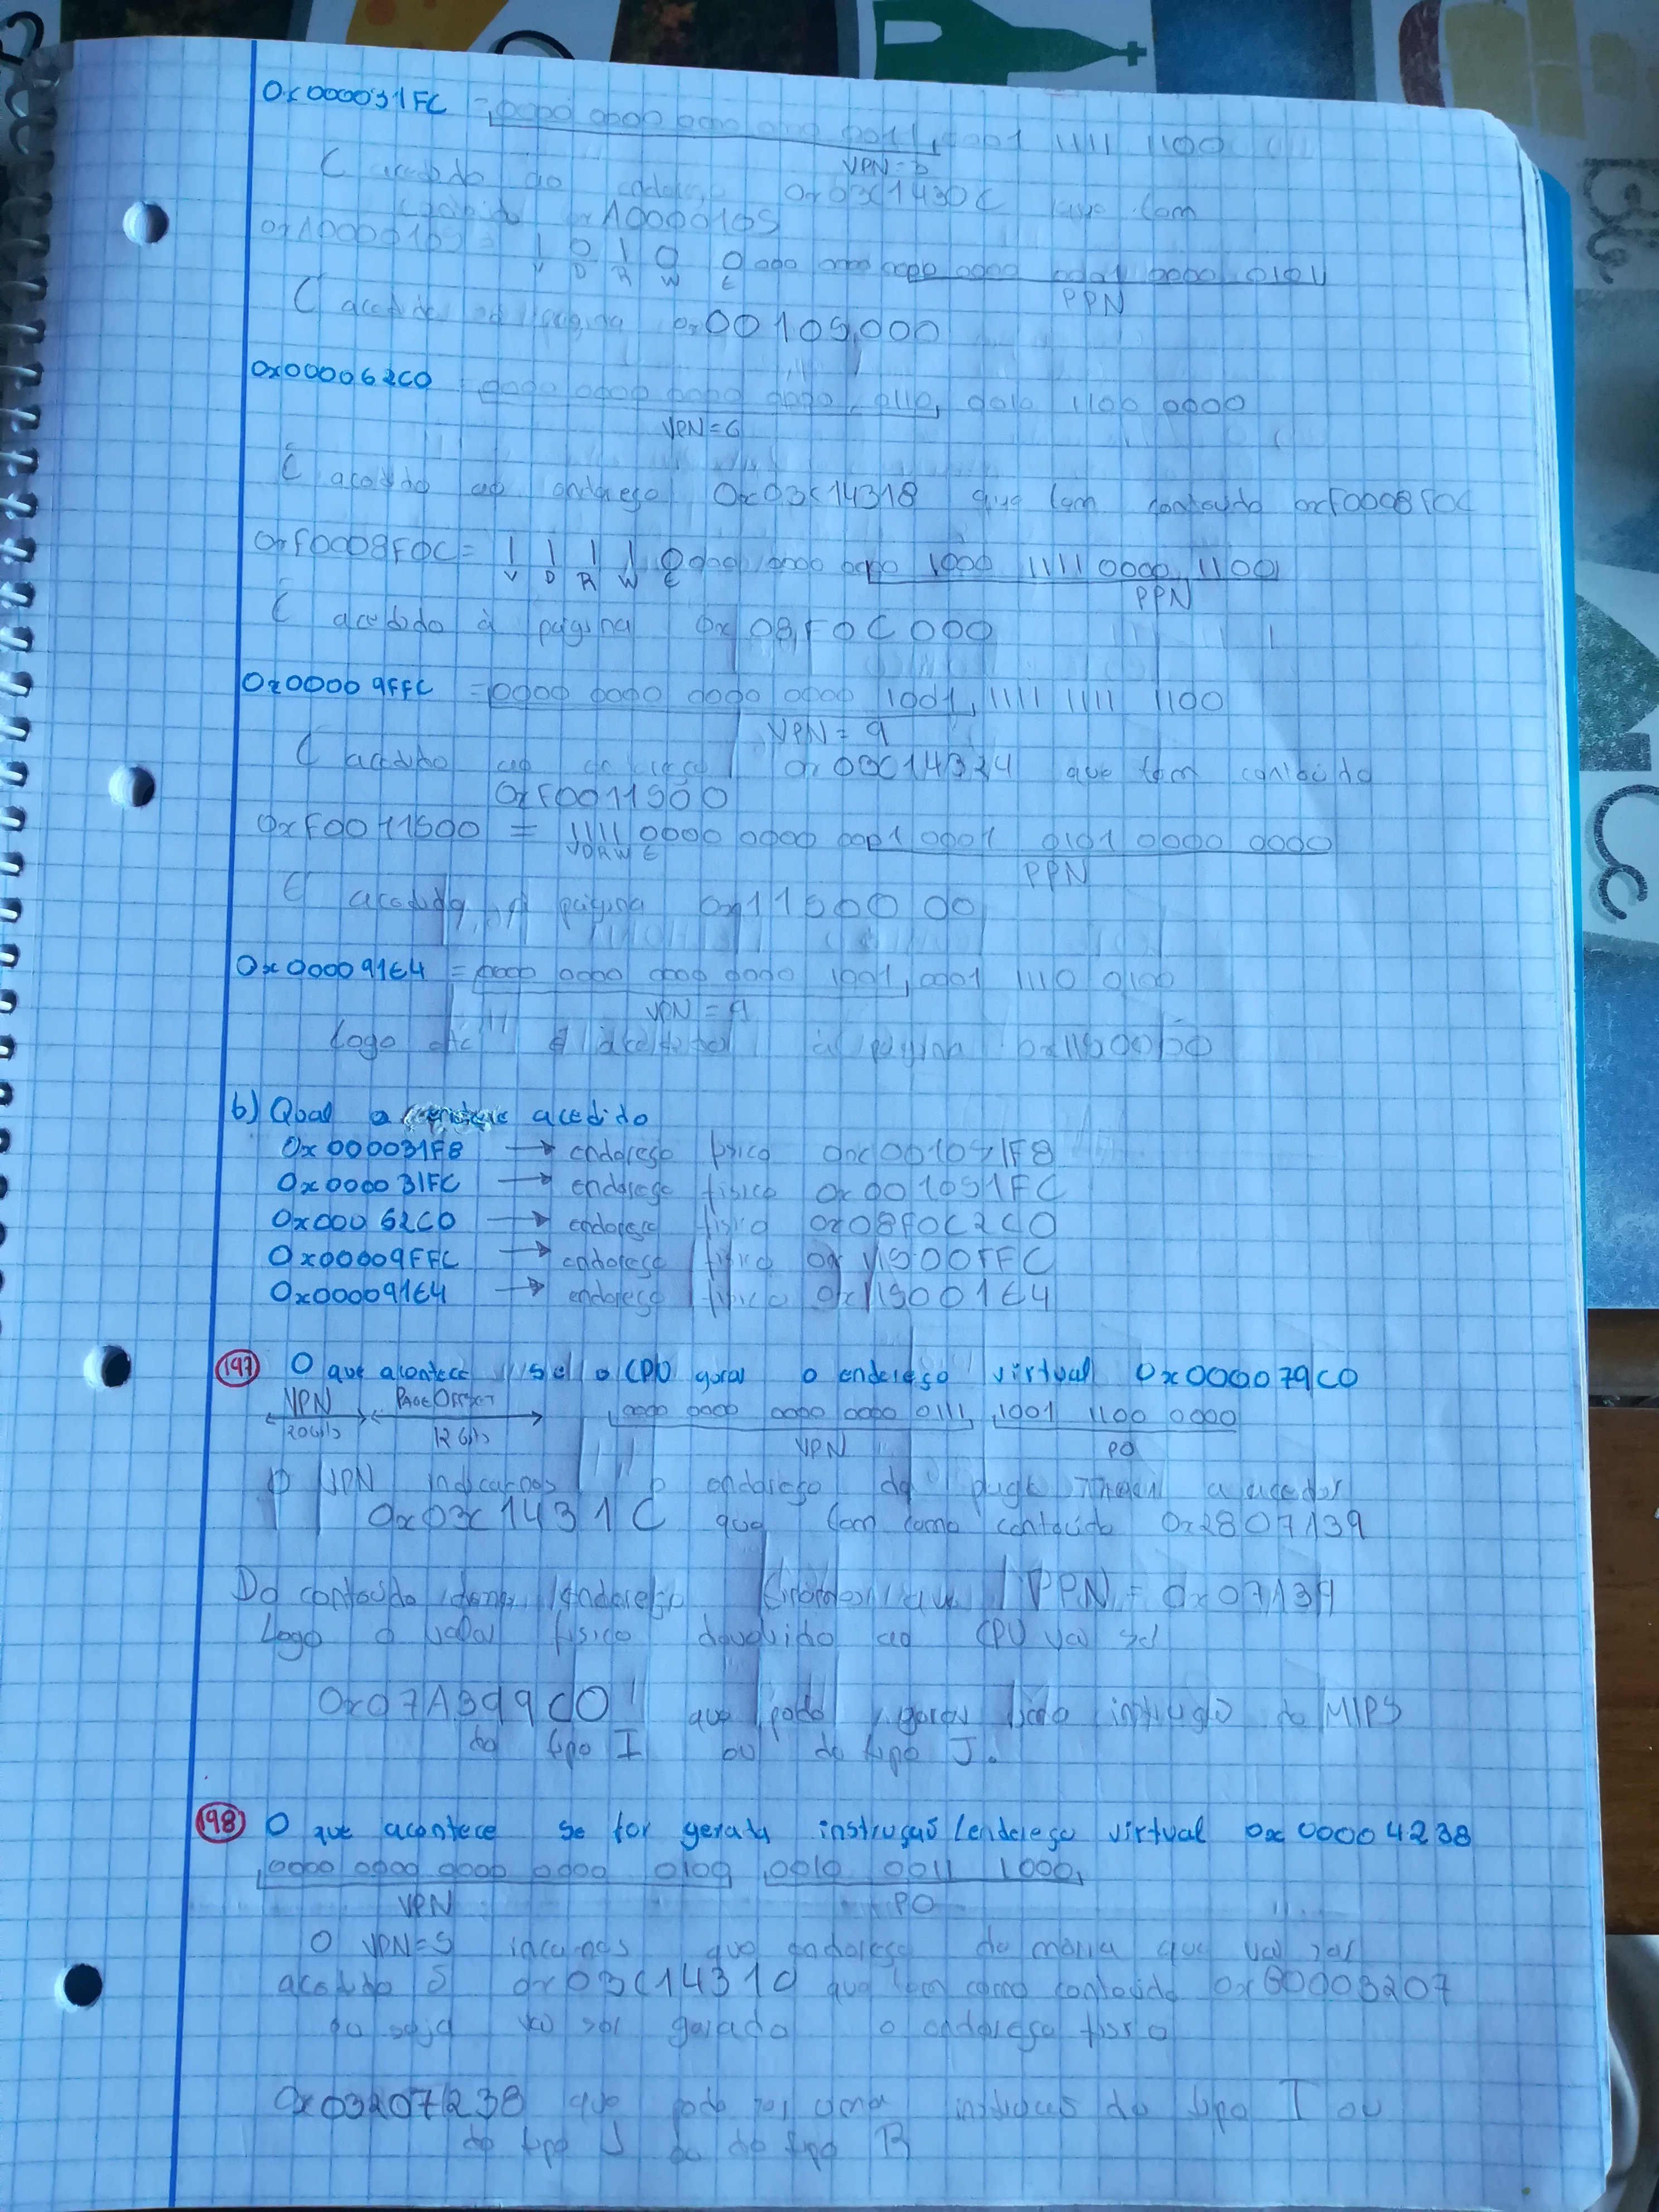 0x000031FC = 0000 0000 0000 0000 0011, 0001 1111 1100
VPN=3
É acedido ao endereço 0x03C1430C que tem
0xA0000105
1 0 1 0 0 000 0000 0000 0000 0001 0000 0101
V D R W E
PPN
É acedido página 0x00105000
0x000062C0 = 0000 0000 0000 0000 0110, 0010 1100 0000
VPN=6
É acedido ao endereço 0x03C14318 que tem conteudo 0xF0008F0C
0xF0008F0C = 1 1 1 1 0000 0000 0000 1000 1111 0000 1100
V D R W E
PPN
É acedido à página 0x08F0C000
0x00009FFC = 0000 0000 0000 0000 1001, 1111 1111 1100
VPN = 9
É acedido ao endereço 0x03C14324 que tem conteúdo
0xF0011500
0xF0011500 = 1111 0000 0000 0001 0001 0101 0000 0000
V D R W E
PPN
É acedida página 0x1150000
0x000091E4 = 0000 0000 0000 0000 1001, 0001 1110 0100
VPN = 9
Logo à página
b) Qual o acedido
0x000031F8 → endereço fisico 0x001051F8
0x000031FC → endereço fisico 0x001051FC
0x00062C0 → endereço fisico 0x08F0C2C0
0x00009FFC → endereço fisico 0x11500FFC
0x000091E4 → endereço fisico 0x115001E4
197 O que acontece se o CPU gerar o endereço virtual 0x000079C0
VPN PAGE OFFSET
20bits 12bits
0000 0000 0000 0000 0111, 1001 1100 0000
VPN PO
O VPN indica-nos o endereço da page a aceder
0x03C1431C que tem como conteúdo 0x2807139
Do conteudo endereço que PPN =
Logo o valor fisico devolvido ao CPU vai ser
0x07A399C0 que pode gerar instrução do MIPS
do tipo I ou do tipo J.
198 O que acontece se for gerada instrução/endereço virtual 0x00004238
0000 0000 0000 0000 0100, 0010 0011 1000
VPN PO
O VPN=5 que endereço de que vai ser
acedido é 0x03C14310 que tem como conteúdo
ou seja vai ser gerado o endereço
0x03207238 que pode ser uma do tipo I ou
do tipo J ou do tipo R